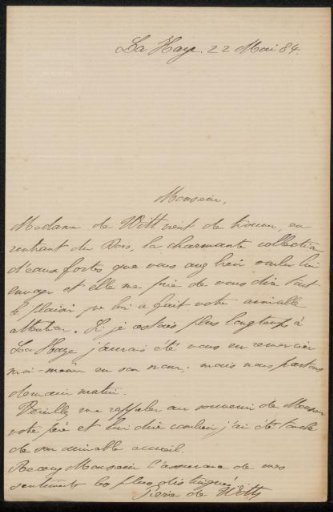 La Haye. 22 Mai 84.
Monsieur,
Madame de Witt vient de trouver, en
rentrant du Bois, la charmante collection
d'eaux fortes que vous avez bien voulu lui
envoyer et elle me prie de vous dire tout
le plaisir que lui a fait votre aimable
attention. Si je restais plus longtemps à
La Haye j'aurais été vous en remercier
moi-même en son nom; mais nous partons
demain matin.
Veuillez me rappeler au souvenir de Monsieur
votre père et lui dire combien j'ai été touché
de son aimable accueil.
Recevez Monsieur l'assurance de mes
sentiments les plus distingués.
de Witt